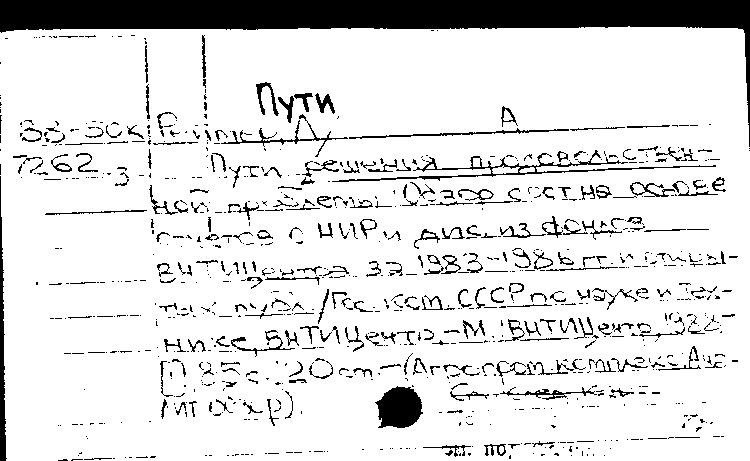 Пути
88-5СК А
7262 3 Пути решения продовольствен-
ной проблемы: Обзор сост. на основе
отчетов о НИР и дис. из фондов
ВНТИЦентра за 1983-1986 гг. и откры-
тых публ. /Гос. ком. СССР по науке и тех-
нике, ВНТИЦентр. -М.: ВНТИЦентр, 1988-
85 с.; 20 см. - (Агропром. комплекс: Ана-
лит. обзор).
См. след. к.
см. по